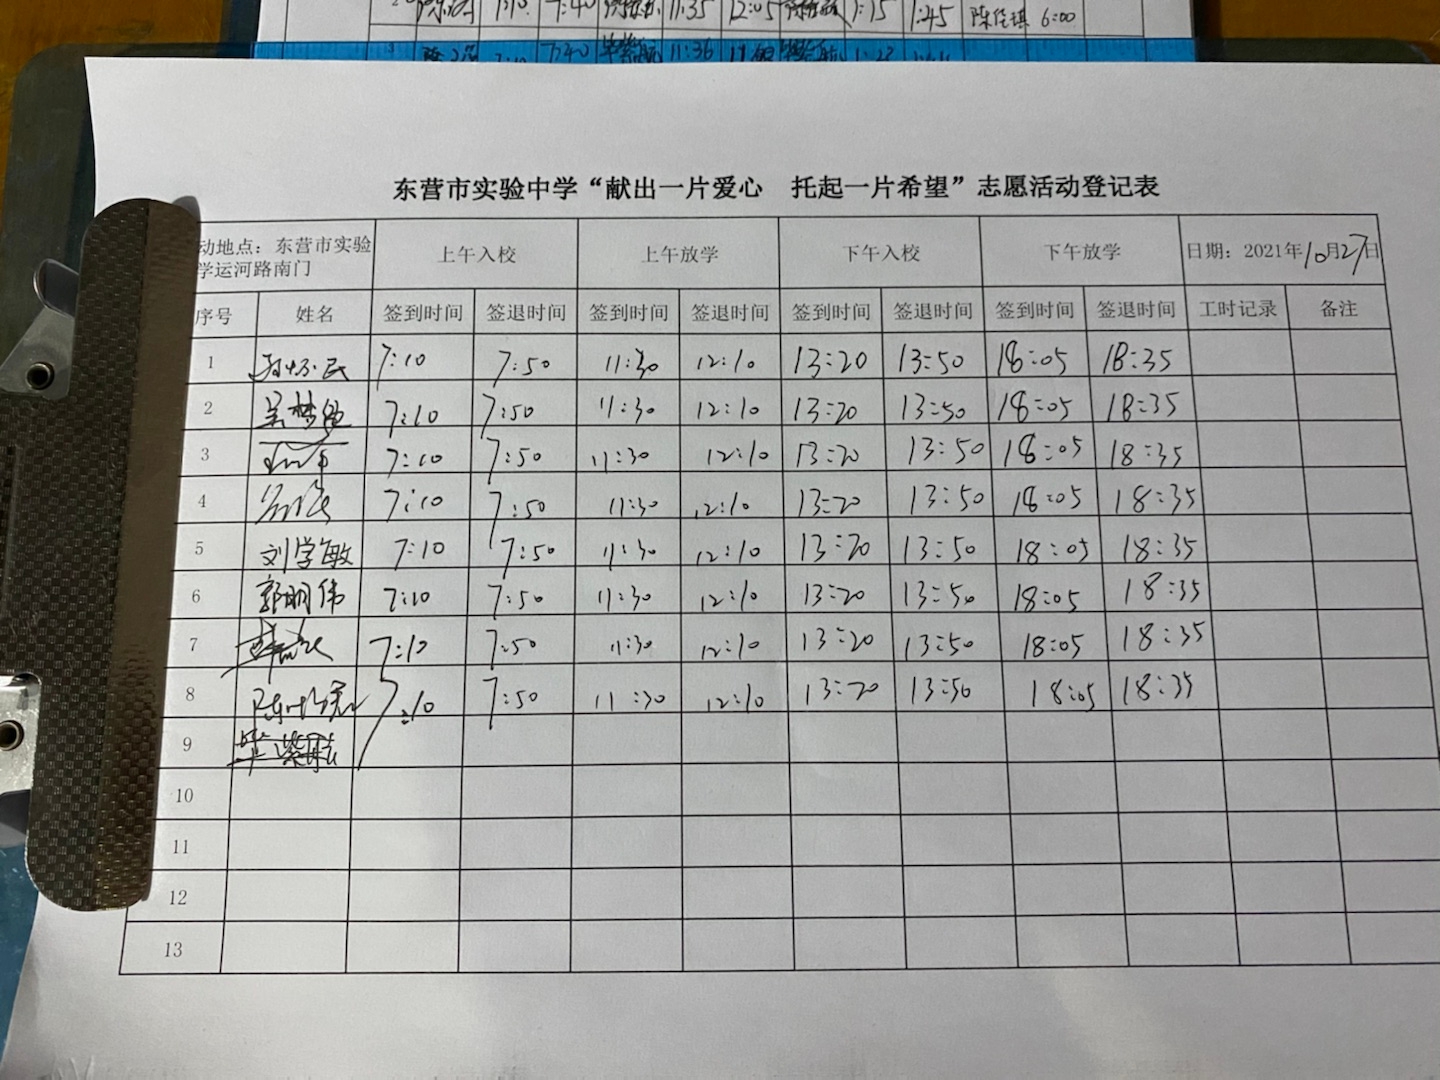 7:40 11:35 12:05 1:15 1:45 陈佳琪 6:00
7:40 11:36
东营市实验中学“献出一片爱心 托起一片希望”志愿活动登记表
动地点：东营市实验 上午入校 上午放学 下午入校 下午放学 日期：2021年10月27日
学运河路南门
序号 姓名 签到时间 签退时间 签到时间 签退时间 签到时间 签退时间 签到时间 签退时间 工时记录 备注
1 孙怀民 7:10 7:50 11:30 12:10 13:20 13:50 18:05 18:35
2 7:10 7:50 11:30 12:10 13:20 13:50 18:05 18:35
3 7:10 7:50 11:30 12:10 13:20 13:50 18:05 18:35
4 7:10 7:50 11:30 12:10 13:20 13:50 18:05 18:35
5 刘学敏 7:10 7:50 11:30 12:10 13:20 13:50 18:05 18:35
6 郭明伟 7:10 7:50 11:30 12:10 13:20 13:50 18:05 18:35
7 7:10 7:50 11:30 12:10 13:20 13:50 18:05 18:35
8 7:10 7:50 11:30 12:10 13:20 13:50 18:05 18:35
9
10
11
12
13